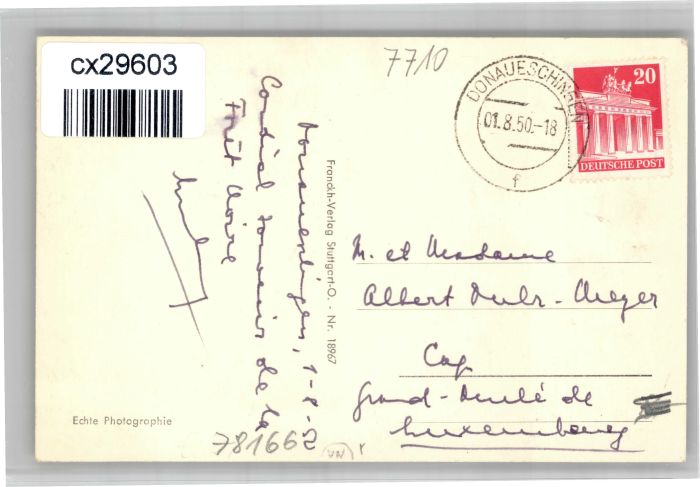 cx29603
7710
DONAUESCHINGEN
01.8.50.-18
f
20
DEUTSCHE POST
Donaueschingen, 1-8-
Cordial souvenir de la
Forêt Noire
Franckh-Verlag Stuttgart-O. - Nr. 18967
M. et Madame
Albert - Meyer
Cap
Grand-Duché de
Luxembourg
Echte Photographie
781662